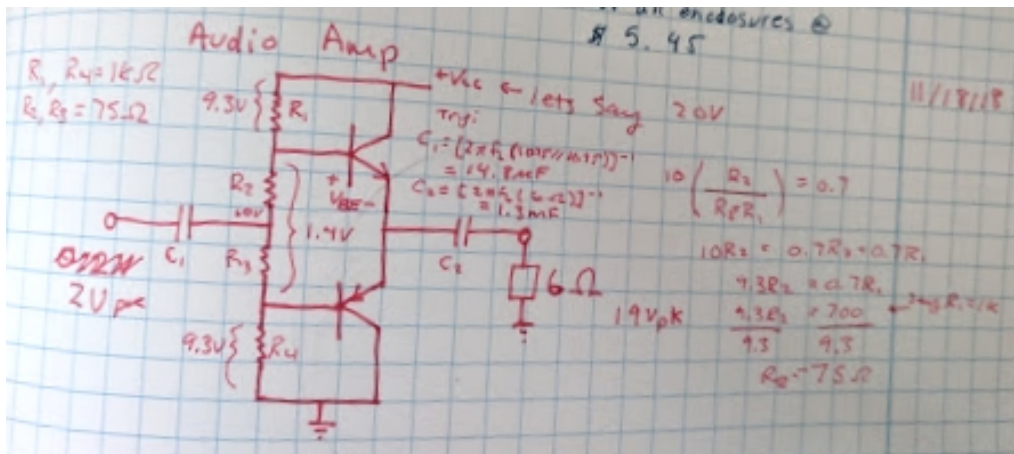 enclosures @
$ 5.45
Audio Amp
11/18/18
R1, R4=1kΩ
R2, R3=75Ω
9.3V { R1
+Vcc ← lets say 20V
Try:
C1=(2πf2(1075//1075))^-1
= 14.8mF
C2=(2πf2(6Ω))^-1
= 1.3mF
R2
+
VBE -
10V
1.4V
C1
R3
C2
2Vpk
6Ω
19Vpk
9.3V { R4
10 (R2 / R2+R1) = 0.7
10R2 = 0.7R2+0.7R1
9.3R2 = 0.7R1
9.3R2 = 700
9.3 9.3
R2=75Ω